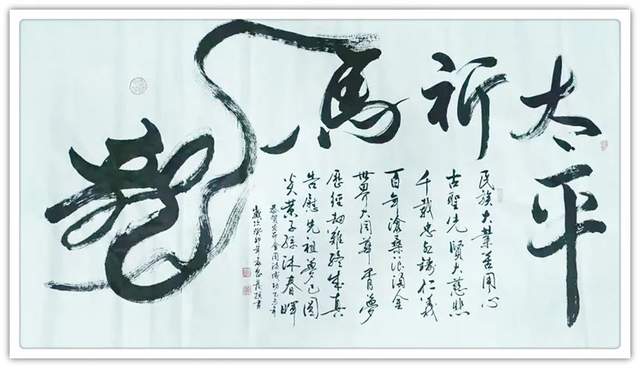 龍馬祈太平
民族大業善用心
古聖先賢大慈悲
千載忠魂鑄仁義
百年滄桑浪淘金
世界大同尊夢
歷經劫難終成真
告慰先祖夢已圓
炎黃子孫沐春暉